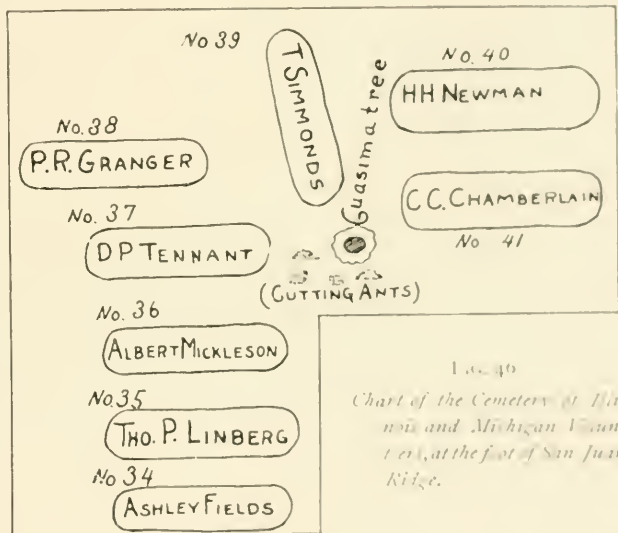 No 39
T SIMMONDS
Guasima tree
No. 40
HH NEWMAN
No. 38
P. R. GRANGER
C. C. CHAMBERLAIN
No 41
No. 37
D P TENNANT
(CUTTING ANTS)
No. 36
ALBERT MICKLESON
No. 35
THO. P. LINBERG
No 34
ASHLEY FIELDS
Chart of the Cemetery of
and Michigan
at the foot of San Juan
Ridge.